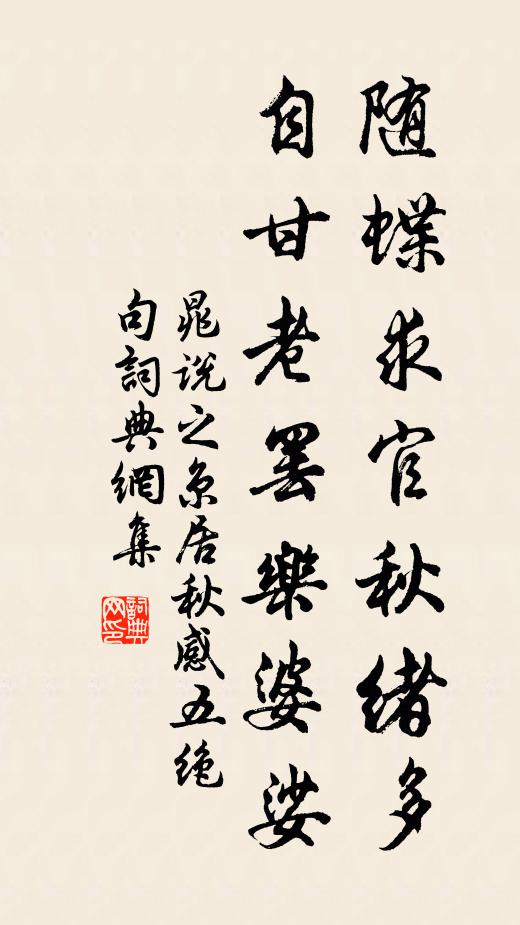 随蝶求官秋緒多
自甘老罢樂婆娑
晁説之京居秋感五绝
句詞典網集
詞典
网印